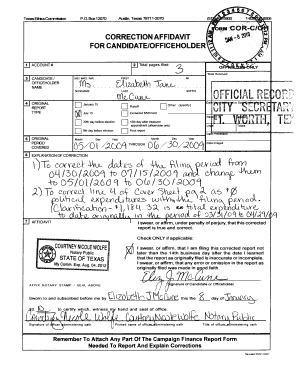 Texas Ethics Commission P.O. Box 12070 Austin, Texas 78711-2070
CORRECTION AFFIDAVIT
FOR CANDIDATE/OFFICEHOLDER
FORM COR-C/OH
1 ACCOUNT #
2 Total pages filed:
3
OFFICE USE ONLY
3 CANDIDATE/
OFFICEHOLDER
NAME
Ms. Elizabeth Jane
McCune
OFFICIAL RECORD
CITY SECRETARY
FT. WORTH, TX
4 ORIGINAL
REPORT
TYPE
January 15
July 15
Runoff
5 ORIGINAL
PERIOD
COVERED
05/01/2009 THROUGH 06/30/2009
6 EXPLANATION OF CORRECTION
1) To correct the dates of the filing period from
04/30/2009 to 07/15/2009 and change
to 05/01/2009 to 06/30/2009
2) To correct line 4 of Cover Sheet pg 2 as
political expenditures within the filing period.
7 AFFIDAVIT
I swear, or affirm, under penalty of perjury, that this corrected
report is true and correct.
Check ONLY if applicable:
I swear, or affirm, that I am filing this corrected report not
later than the 14th business day after the date I learned
that the report as originally filed is inaccurate or incomplete.
I swear, or affirm, that any error or omission in the report as
originally filed was made in good faith.
COURTNEY NICOLE WOLFE
Notary Public
STATE OF TEXAS
My Comm. Exp. Aug. 04, 2012
Signature of Candidate or Officeholder
AFFIX NOTARY STAMP / SEAL ABOVE
Sworn to and subscribed before me by Elizabeth J McCune this the 8 day of January
to certify which, witness my hand and seal of office.
Courtney Nicole Wolfe Notary Public
Signature of officer administering oath Printed name of officer administering oath Title of officer administering oath
Remember To Attach Any Part Of The Campaign Finance Report Form
Needed To Report And Explain Corrections